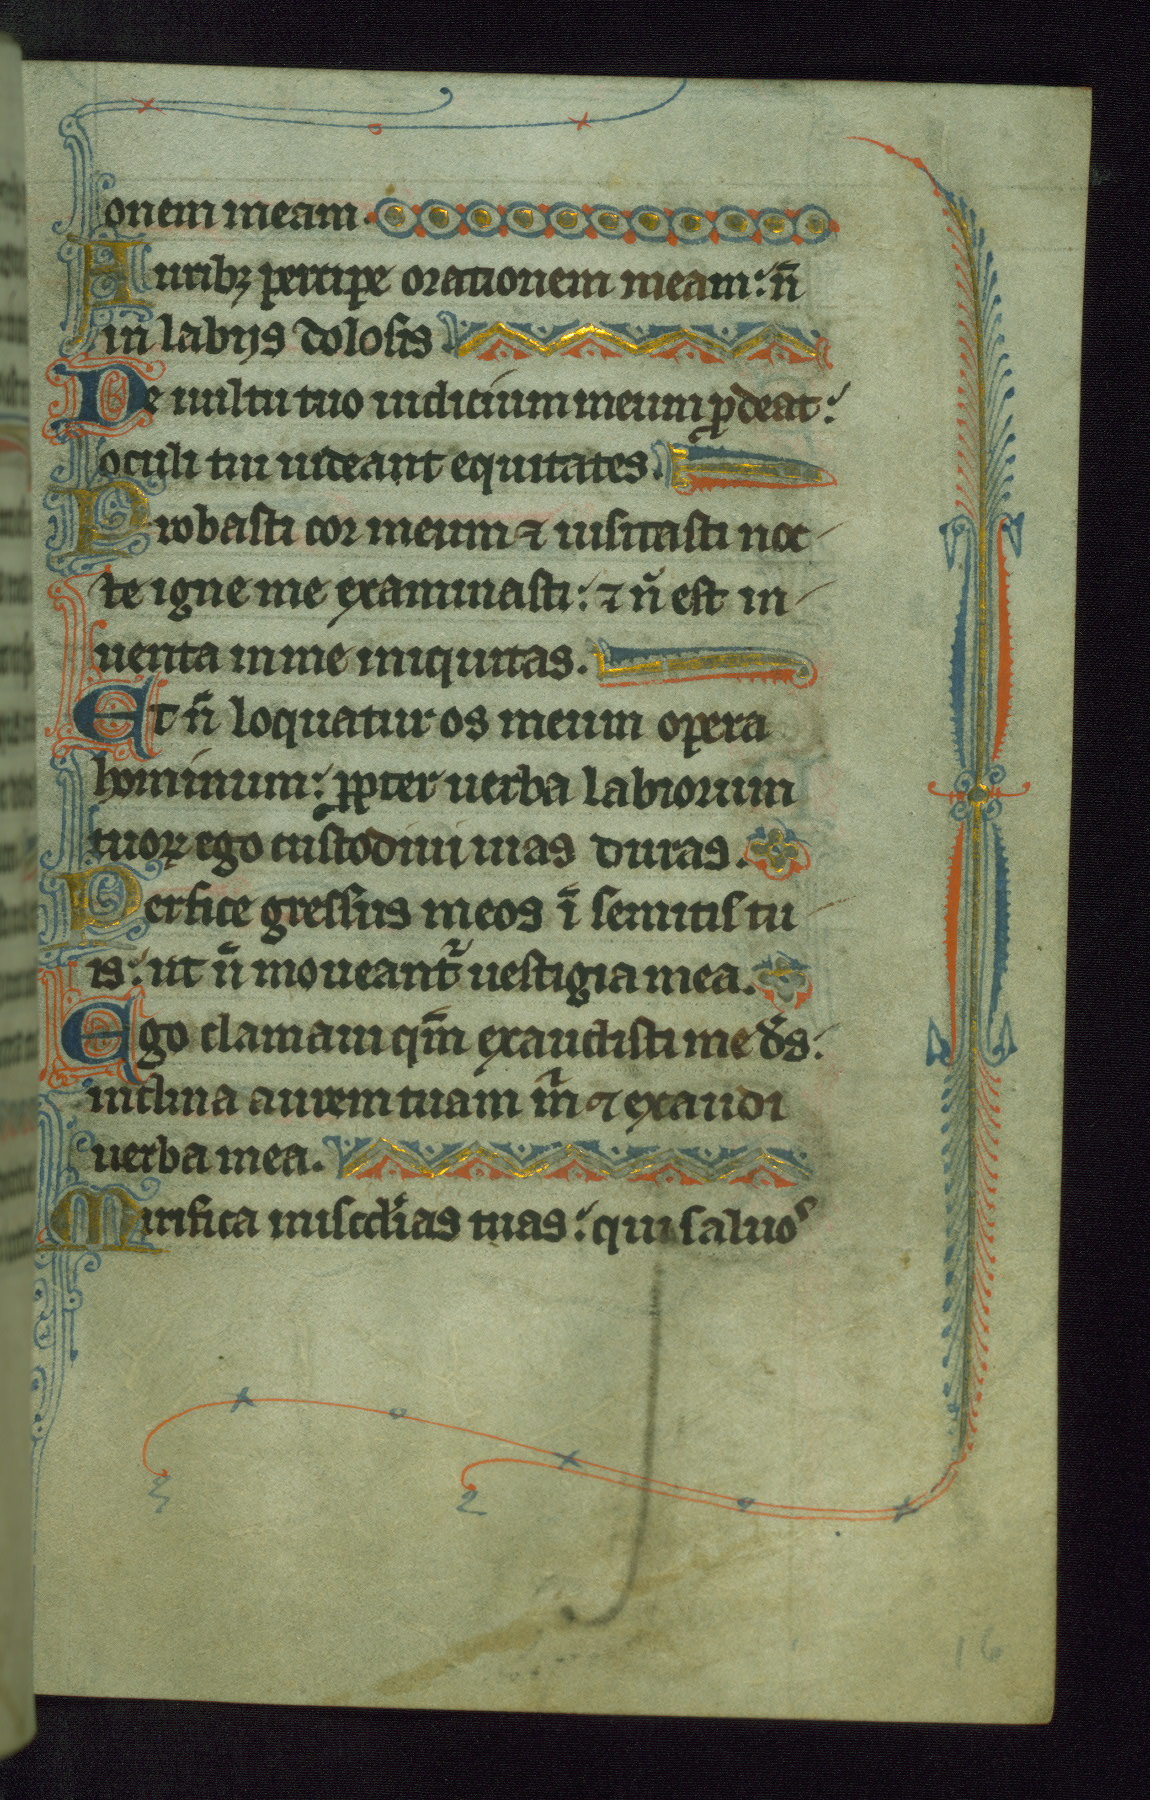 onem meam.
Auribꝫ percipe orationem meam: n̄
in labijs dolosis.
De uultu tuo iudicium meum ꝓdeat:
oculi tui uideant equitates.
Probasti cor meum ⁊ uisitasti noc
te igne me examinasti: ⁊ n̄ est in
uenta in me iniquitas.
Et n̄ loquatur os meum opera
hominum: ꝓpter uerba labiorum
tuoꝝ ego custodiui uias duras.
Perfice gressus meos ī semitis tu
is: ut n̄ moueant᷑ uestigia mea.
Ego clamaui qm̄ exaudisti me d̄s:
inclina aurem tuam m̄ ⁊ exaudi
uerba mea.
Mirifica miscd̓ias tuas: qui saluos
16